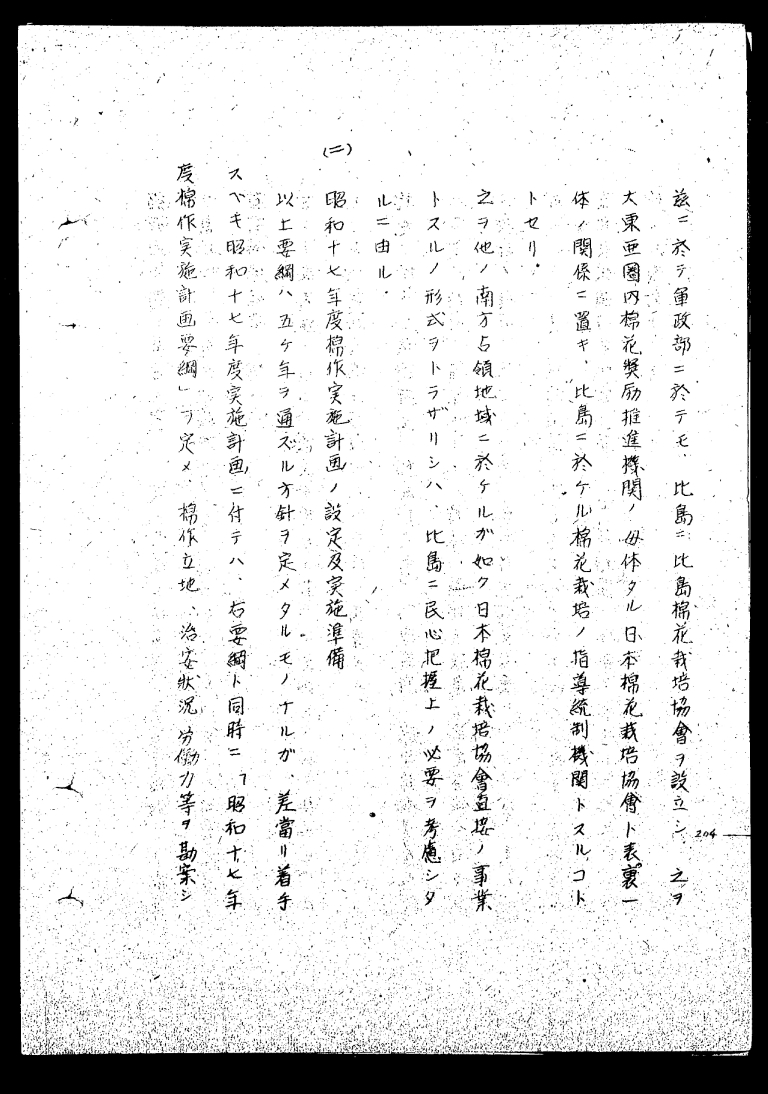 茲ニ於テ軍政部ニ於テモ、比島ニ比島棉花栽培協會ヲ設立シ、之ヲ
大東亜圏内棉花奨励推進機関ノ母体タル日本棉花栽培協會ト表裏一
体ノ関係ニ置キ、比島ニ於ケル棉花栽培ノ指導統制機関トスルコト
トセリ。
之ヲ他ノ南方占領地域ニ於ケルガ如ク日本棉花栽培協會直接ノ事業
トスルノ形式ヲトラザリシハ、比島ニ民心把握上ノ必要ヲ考慮シタ
ルニ由ル。
(二) 昭和十七年度棉作実施計画ノ設定及実施準備
以上要綱ハ五ケ年ヲ通ズル方針ヲ定メタルモノナルガ、差當リ着手
スベキ昭和十七年度実施計画ニ付テハ、右要綱ト同時ニ「昭和十七年
度棉作実施計画要綱」ヲ定メ、棉作立地、治安状況労働力等ヲ勘案シ
204